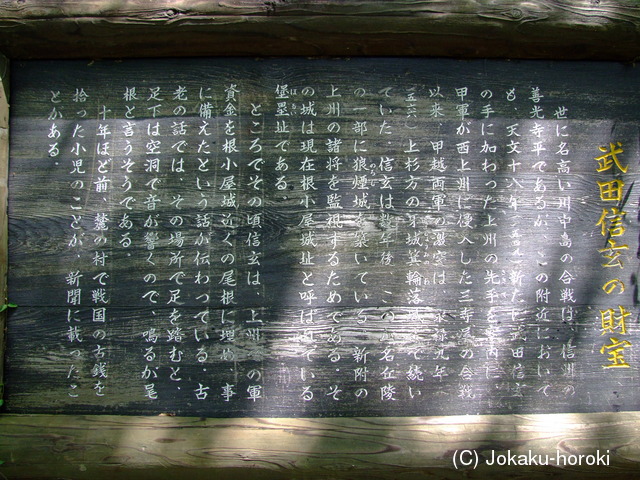 武田信玄の財宝
世に名高い川中島の合戦は、信州の
善光寺平であるが、この附近において
も、天文十八年 新たに武田信玄
の手に加わった上州の先手を案内に、
甲軍が西上州に侵入した三寺尾の合戦
以来、甲越両軍の激突は、永禄九年
上杉方の牙城箕輪落城まで続い
ていた。信玄は数年後、この 名丘陵
の一部に狼煙城を築いている。新附の
上州の諸将を監視するためである。そ
の城は現在根小屋城址と呼ばれている
堡塁址である。
ところでその頃信玄は、上州 の軍
資金を根小屋城近くの尾根に埋め、事
に備えたという話が伝わっている。古
老の話では、その場所で足を踏むと、
足下は空洞で音が響くので、鳴るが尾
根と言うそうである。
十年ほど前、麓の村で戦国の古銭を
拾った小児のことが、新聞に載ったこ
とがある。
(C) Jokaku-horoki